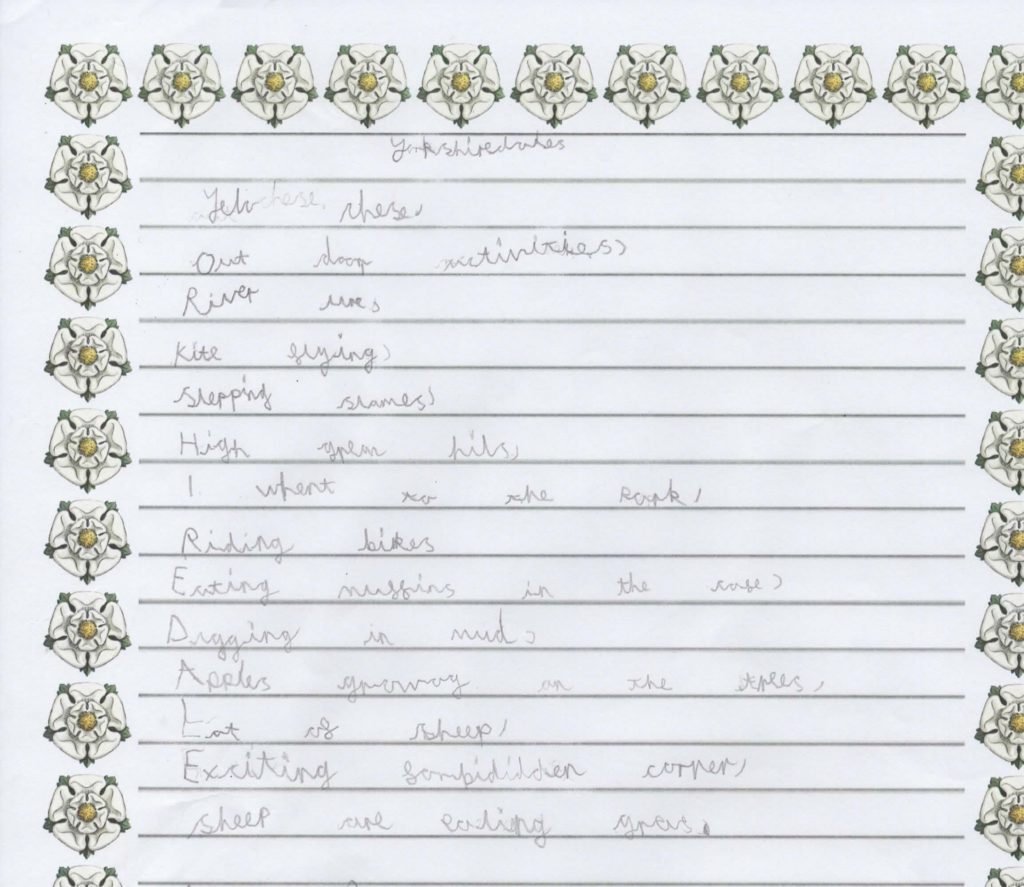 Yorkshiredales
chese,
Out door activities,
River ure,
Kite flying,
stepping stones,
High green hils,
I whent to the park,
Riding bikes
Eating muffins in the cafe,
Digging in mud,
Apples growing on the trees,
Lot of sheep,
Exciting corner,
sheep are eading gras.